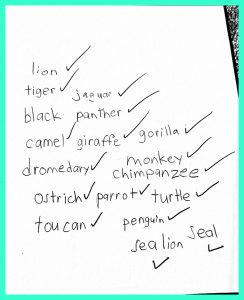 lion ✓
tiger ✓ jaguar ✓
black panther ✓
camel ✓ giraffe ✓ gorilla ✓
dromedary ✓ monkey ✓
chimpanzee ✓
ostrich ✓ parrot ✓ turtle ✓
toucan ✓ penguin ✓
sea lion ✓ seal ✓